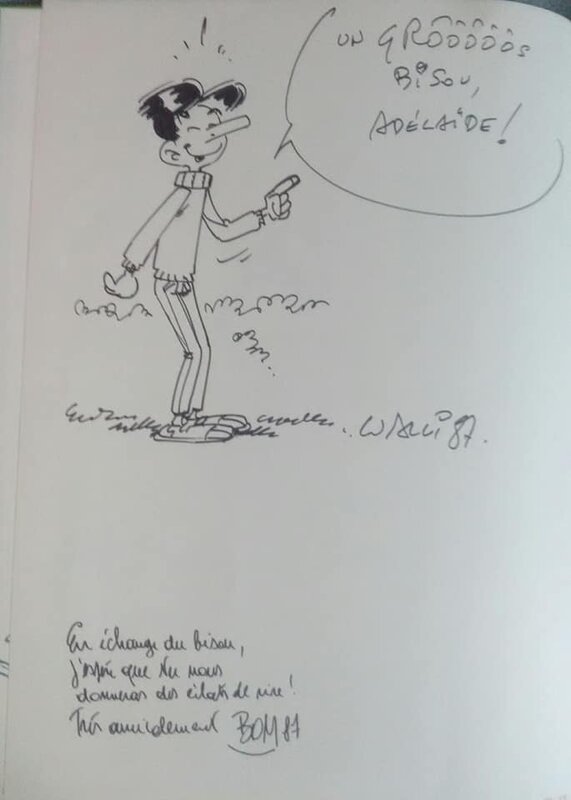 UN GRÔÔÔÔÔS
BISOU,
ADÉLAÏDE!
WALLI 87.
En échange du bisou,
j'espère que tu nous
donneras des éclats de rire!
Très amicalement BOM 87